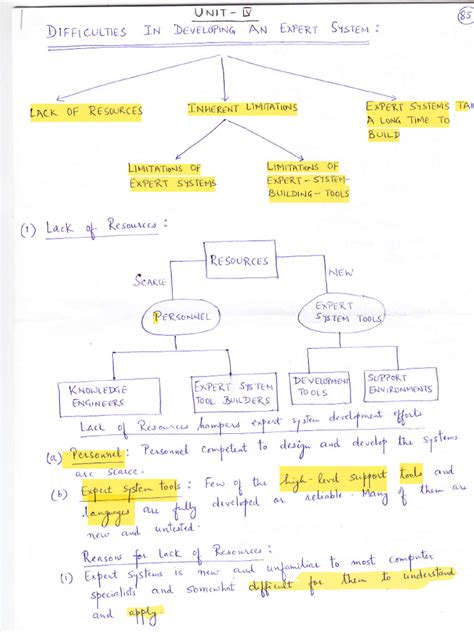 UNIT - IV
85
DIFFICULTIES IN DEVELOPING AN EXPERT SYSTEM :
LACK OF RESOURCES
INHERENT LIMITATIONS
EXPERT SYSTEMS TA
A LONG TIME TO
BUILD
LIMITATIONS OF
EXPERT SYSTEMS
LIMITATIONS OF
EXPERT-SYSTEM-
BUILDING-TOOLS
(1) Lack of Resources :
RESOURCES
SCARCE
NEW
PERSONNEL
EXPERT
SYSTEM TOOLS
KNOWLEDGE
ENGINEERS
EXPERT SYSTEM
TOOL BUILDERS
DEVELOPMENT
TOOLS
SUPPORT
ENVIRONMENTS
Lack of Resources hampers expert system development efforts
(a) Personnel: Personnel competent to design and develop the systems
are scarce.
(b) Expert system tools : Few of the high-level support tools and
languages are fully developed or reliable. Many of them are
new and untested.
Reasons for Lack of Resources :
(i) Expert Systems is new and unfamiliar to most computer
specialists and somewhat difficult for them to understand
and apply.